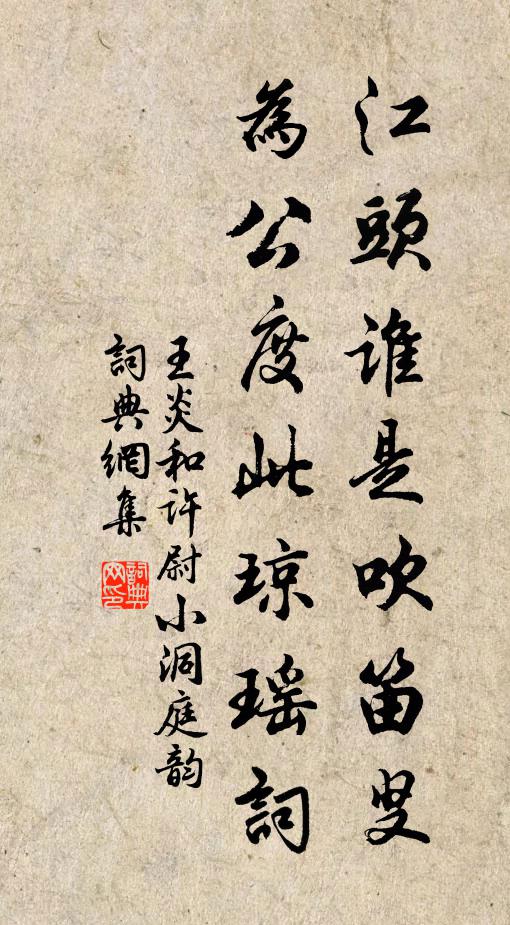 江頭誰是吹笛叟
為公度此琼瑶詞
王炎和许尉小洞庭韵
詞典網集
詞典网印